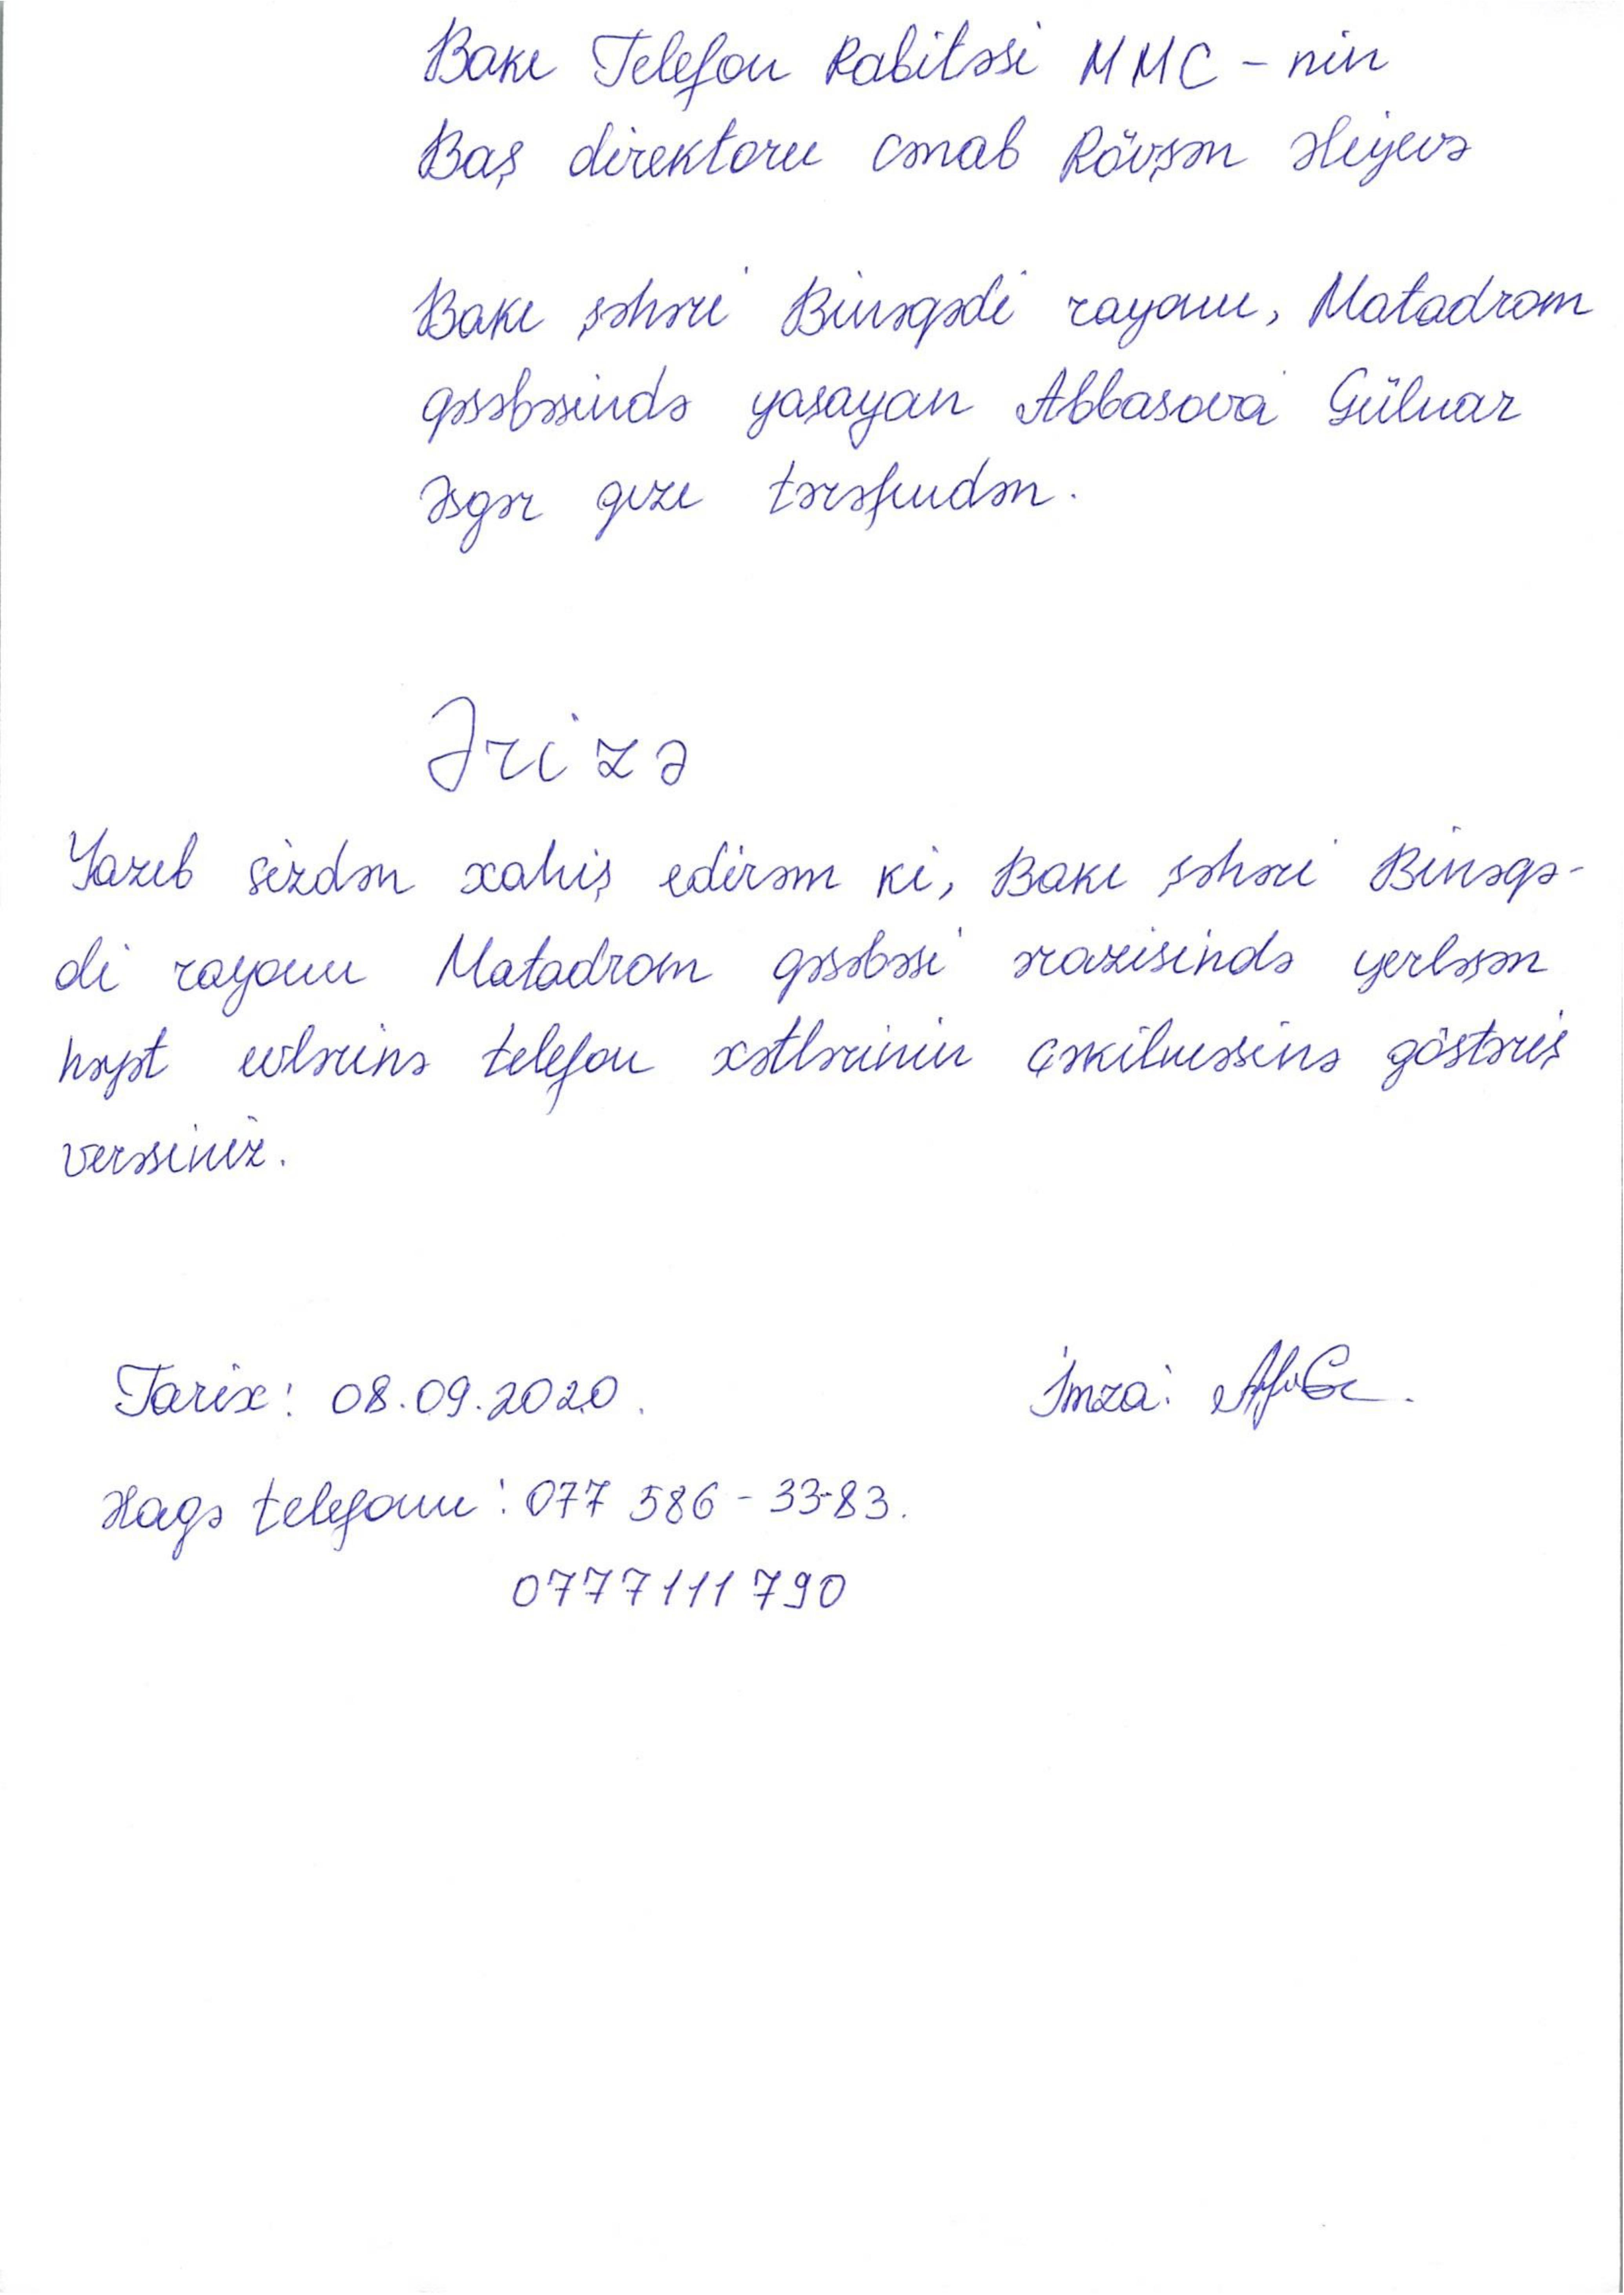 Bakı Telefon Rabitəsi MMC - nin
Baş direktoru cənab Rövşən Əliyevə
Bakı şəhəri Binəqədi rayonu, Matadrom
qəsəbəsində yaşayan Abbasova Gülnar
Əsgər qızı tərəfindən.
Ərizə
Yazıb sizdən xahiş edirəm ki, Bakı şəhəri Binəqə-
di rayonu Matadrom qəsəbəsi ərazisində yerləşən
həyət evlərinə telefon xətlərinin çəkilməsinə göstəriş
verəsiniz.
Tarix: 08.09.2020.
İmza:
Əlaqə telefonu: 077 586 - 33-83.
0777111790